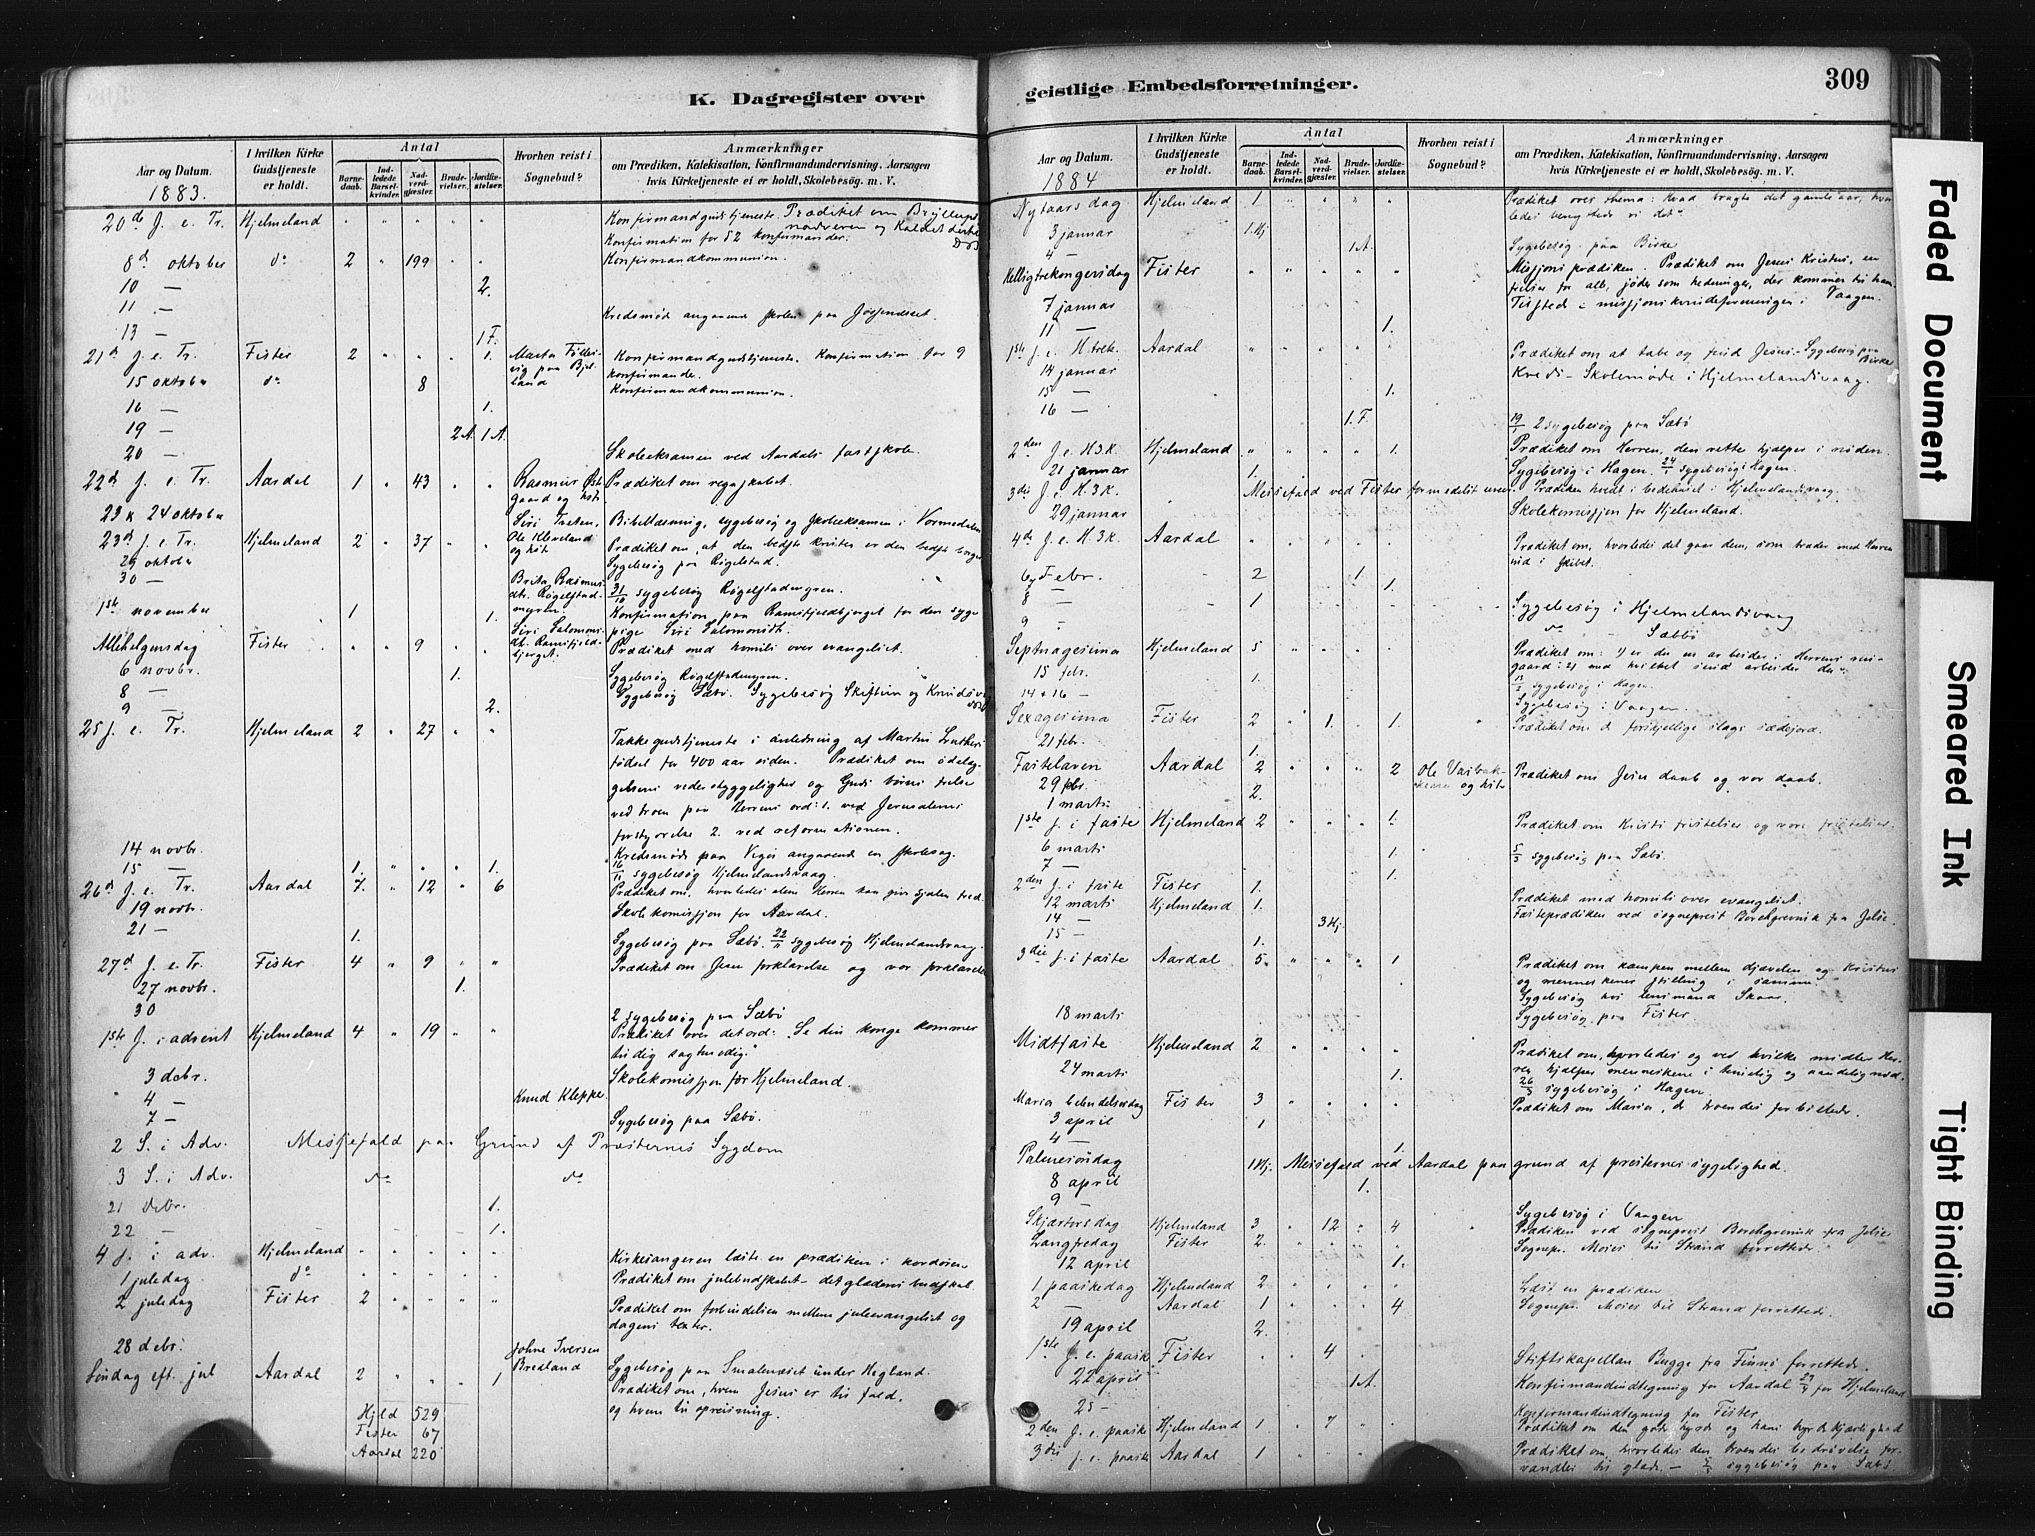 K. Dagregister over
Aar og Datum.
1883.
I hvilken Kirke Gudstjeneste er holdt.
Antal
Barnedaab.
Indledede Barselkvinder.
Nadverdgjæster.
Brudevielser.
Jordfæstelser.
Hvorhen reist i Sognebud?
Anmærkninger
om Prædiken, Katekisation, Konfirmandundervisning, Aarsagen
hvis Kirketjeneste ei er holdt, Skolebesög. m. V.
20de J. e. Tr. Hjelmeland Konfirmandgudstjeneste. Prædiket om Bryllups
Konfirmation for 52 konfirmander.
8d oktober do 2 " 199 " " Konfirmandkommunion.
10 — 2.
11 — Kredsmöde angaaende skolen paa
13 — 1 F.
21d J. e. Tr. Fister 2 " " " 1. Konfirmandgudstjeneste. Konfirmation for 9
konfirmander.
15 oktober do 8 Konfirmandkommunion.
16 — 1.
19 — 2 A. 1 A.
20 — Skoleeksamen ved Aardals fastskole.
22d J. e. Tr. Aardal 1 " 43 " " Rasmus
Prædiket om
23 & 24 oktober Bibellæsning, sygebesög og skoleeksamen i Vormedalen
23d J. e. Tr. Hjelmeland 2 " 37 " " Ole Kleveland
Prædiket om, at den bedste kristen er den bedste borger
29 oktober Sygebesög paa
30 — Brita Rasmus-
31/10 sygebesög
1ste november 1 1. Konfirmation paa Ramsfjeldbjerget for den syge
pige Siri Salomonsdt.
Allehelgensdag Fister " " 9 " " Prædiket med homili over evangeliet.
6 novbr. 1. Sygebesög
8 — Sygebesög Sæbö. Sygebesög
9 — 2.
25 J. e. Tr. Hjelmeland 2 " 27 " "
Takkegudstjeneste i anledning af Martin Luthers
födsel for 400 aar siden. Prædiket om ödelæg-
gelsens vederstyggelighed og Guds börns frelse
ved troen paa Herrens ord: 1. ved Jerusalems
forstyrrelse 2. ved reformationen.
14 novbr. Kredsmöde paa angaaende en skolesag.
15 — 1. 1. 16/11 sygebesög Hjelmelandsvaag.
26d J. e. Tr. Aardal 7. " 12 " 6 Prædiket om, hvorledes alene Herren kan give sjælen fred.
19 novbr. Skolekomisjon for Aardal.
21 — 1. Sygebesög paa Sæbö. 22/11 sygebesög Hjelmelandsvaag.
27d J. e. Tr. Fister 4 " 9 " " Prædiket om Jesu forklarelse og vor forklarelse
27 novbr. 1.
30 2 sygebesög paa Sæbö
1ste J. i advent Hjelmeland 4 " 19 " " Prædiket over det ord: "Se din konge kommer
til dig sagtmodig."
3 debr. Skolekomisjon for Hjelmeland.
4 — Knud Kleppe.
7 — Sygebesög paa Sæbö.
2 S. i Adv. Messefald paa Grund af Præsternes Sygdom
3 S. i Adv. do do
21 debr. 1.
22 — 1.
4 J. i adv. Hjelmeland Kirkesangeren læste en prædiken i kordören
1 juledag do Prædiket om julebudskabet — det glædens budskab
2 juledag Fister 2 " " " " Prædiket om forbindelsen mellem juleevangeliet og
dagens tekster.
28 debr. Johne Iversen
Bredland Sygebesög paa under Hegland.
Söndag eft. jul Aardal 2 " " " 1 Prædiket om, hvem Jesus er til fald,
og hvem til opreisning.
Hjld 529
Fister 67
Aardal 220
geistlige Embedsforretninger.
309
Aar og Datum.
1884
I hvilken Kirke Gudstjeneste er holdt.
Antal
Barnedaab.
Indledede Barselkvinder.
Nadverdgjæster.
Brudevielser.
Jordfæstelser.
Hvorhen reist i Sognebud?
Anmærkninger
om Prædiken, Katekisation, Konfirmandundervisning, Aarsagen
hvis Kirketjeneste ei er holdt, Skolebesög. m. V.
Nytaarsdag Hjelmeland 1. " " " " Prædiket over thema: Hvad bragte det gamle aar, hvor-
ledes benyttede vi det"
3 januar 1 Hj.
4 — 1 A. Sygebesög paa Birke
Helligtrekongersdag Fister " " " " " Missions prædiken. Prædiket om Jesus Kristus, en
frelser for alle, jöder som hedninger, der kommer til ham.
7 januar missionskvindeforeningen i Vaagen.
11 — 1.
1ste J. e. H. trek. Aardal " " " " " Prædiket om at tabe og finde Jesus. — Sygebesög paa Birke
14 januar Kreds — Skolemöde i Hjelmelandsvaag.
15 — 1.
16 — 1. F.
19/1 2 sygebesög paa Sæbö
2den J. e. H. 3 K. Hjelmeland " " " " 1. Prædiket om Herren, den rette hjælper i nöden.
21 januar 1. Sygebesög i Hagen. 24/1 sygebesög i Hagen.
3die J. e. H. 3 K. Messefald ved Fister formedelst uveir. Prædiken holdt i bedehuset i Hjelmelandsvaag.
29 januar Skolekomisjon for Hjelmeland.
4de J. e. H. 3 K. Aardal " " " " " Prædiket om, hvorledes det gaar dem, som træder med Herren
ind i skibet.
6 Febr. 2 1
8 — 1 1. Sygebesög i Hjelmelandsvaag
9 — do — Sæbö
Septuagesima Hjelmeland 5 " " " " Prædiket om: 1) er du en arbeider i Herrens vin-
gaard: 2) med hvilket sind arbeider du"
15 febr. 1. sygebesög i Hagen.
14 & 16 — Sygebesög i Vaagen.
Sexagesima Fister 2 " 1. " 1. Prædiket om de forskjellige slags sædejord.
21 febr. 1.
Fastelaven Aardal 2 " " " 2 Prædiket om Jesus daab og vor daab.
29 febr. 2.
1 marts
1ste J. i faste Hjelmeland 2 " " " 1. Prædiket om Kristi fristelser og vore fristelser.
6 marts 1. 5/3 sygebesög paa Sæbö.
7 — 1.
2den J. i faste Fister 1. Prædiket med homili over evangeliet.
12 marts Hjelmeland 1. Fasteprædiken ved sogneprest Borchgrevink fra Jelse.
14 — 3 Hj.
15 — 1.
3die J. i faste Aardal 5. " " " 1 Prædiket om kampen mellem djævelen og Kristus
og menneskenes stilling i samme.
Sygebesög hos lensmand Skaar.
18 marts Sygebesög paa Fister.
Midtfaste Hjelmeland 2 " " " " Prædiket om, hvorledes og ved hvilke midler Her-
ren hjælper menneskene i timelig og aandelig nöd.
24 marts 1. 26/3 sygebesög i Hagen.
Marias bebudelsesdag Fister 3 " " " " Prædiket om Maria, de troendes forbillede.
3 april 1
4 — 1.
Palmesöndag 1 Hj. Messefald ved Aardal paa grund af presternes sygelighed.
8 april 1.
9 — Sygebesög i Vaagen
Skjærtorsdag Hjelmeland 3 " 12 " 4 Prædiken ved sogneprest Borchgrevink fra Jelse
Langfredag Fister 2. Sognepr. Moses til Strand forrettede.
12 april 1.
1 paaskedag Hjelmeland 2 Læst en prædiken
2 — Aardal 1 4 Sognepr. Moses til Strand forrettede.
19 april 2.
1ste J. e. paaske Fister " " 4 Stiftskapellan Bugge fra Finnö forrettede.
22 april 1 A. Konfirmandindtegning for Aardal for Hjelmeland
25 — Konfirmandindtegning for Fister
2den J. e. paaske Hjelmeland 1 " 7 " " Prædiket om den gode hyrde og hans hyrdekjærlighed
3die J. e. paaske Aardal 1 Prædiket om, hvorledes den troendes bedrövelse for-
vandles til glæde. — sygebesög paa Sæbö
Faded Document
Smeared Ink
Tight Binding